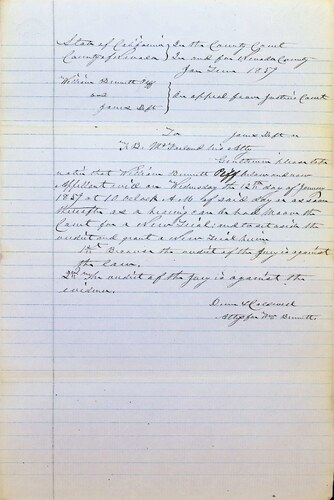 State of California } In the County Court
County of Nevada } In and for Nevada County
Jan Term 1857
William Bennett Plff }
and } On appeal from Justices Court
James Deft }
To James Deft or
J. B. McFarland his Atty
Gentlemen please take
notice that William Bennett Plff below and now
Appellant will on Wednesday the 12th day of January
1857 at 10 oclock A.M. of said day or as soon
thereafter as a hearing can be had Move the
Court for a New Trial and to set aside the
verdict and grant a New Trial herein
1st Because the verdict of the Jury is against
the law.
2nd The verdict of the Jury is against the
evidence.
& Caldwell
Attys for Wm Bennett